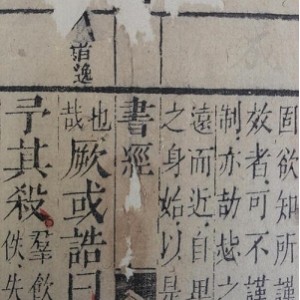 固欲知所謹
效者可不謹
制亦劼毖之
遠而近自思
之身始以是
書經
也哉厥或誥曰
予其殺羣飲佚失
逸